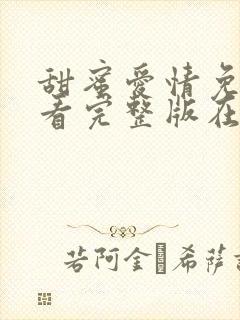 甜蜜爱情免
看完整版在
若阿金·希萨